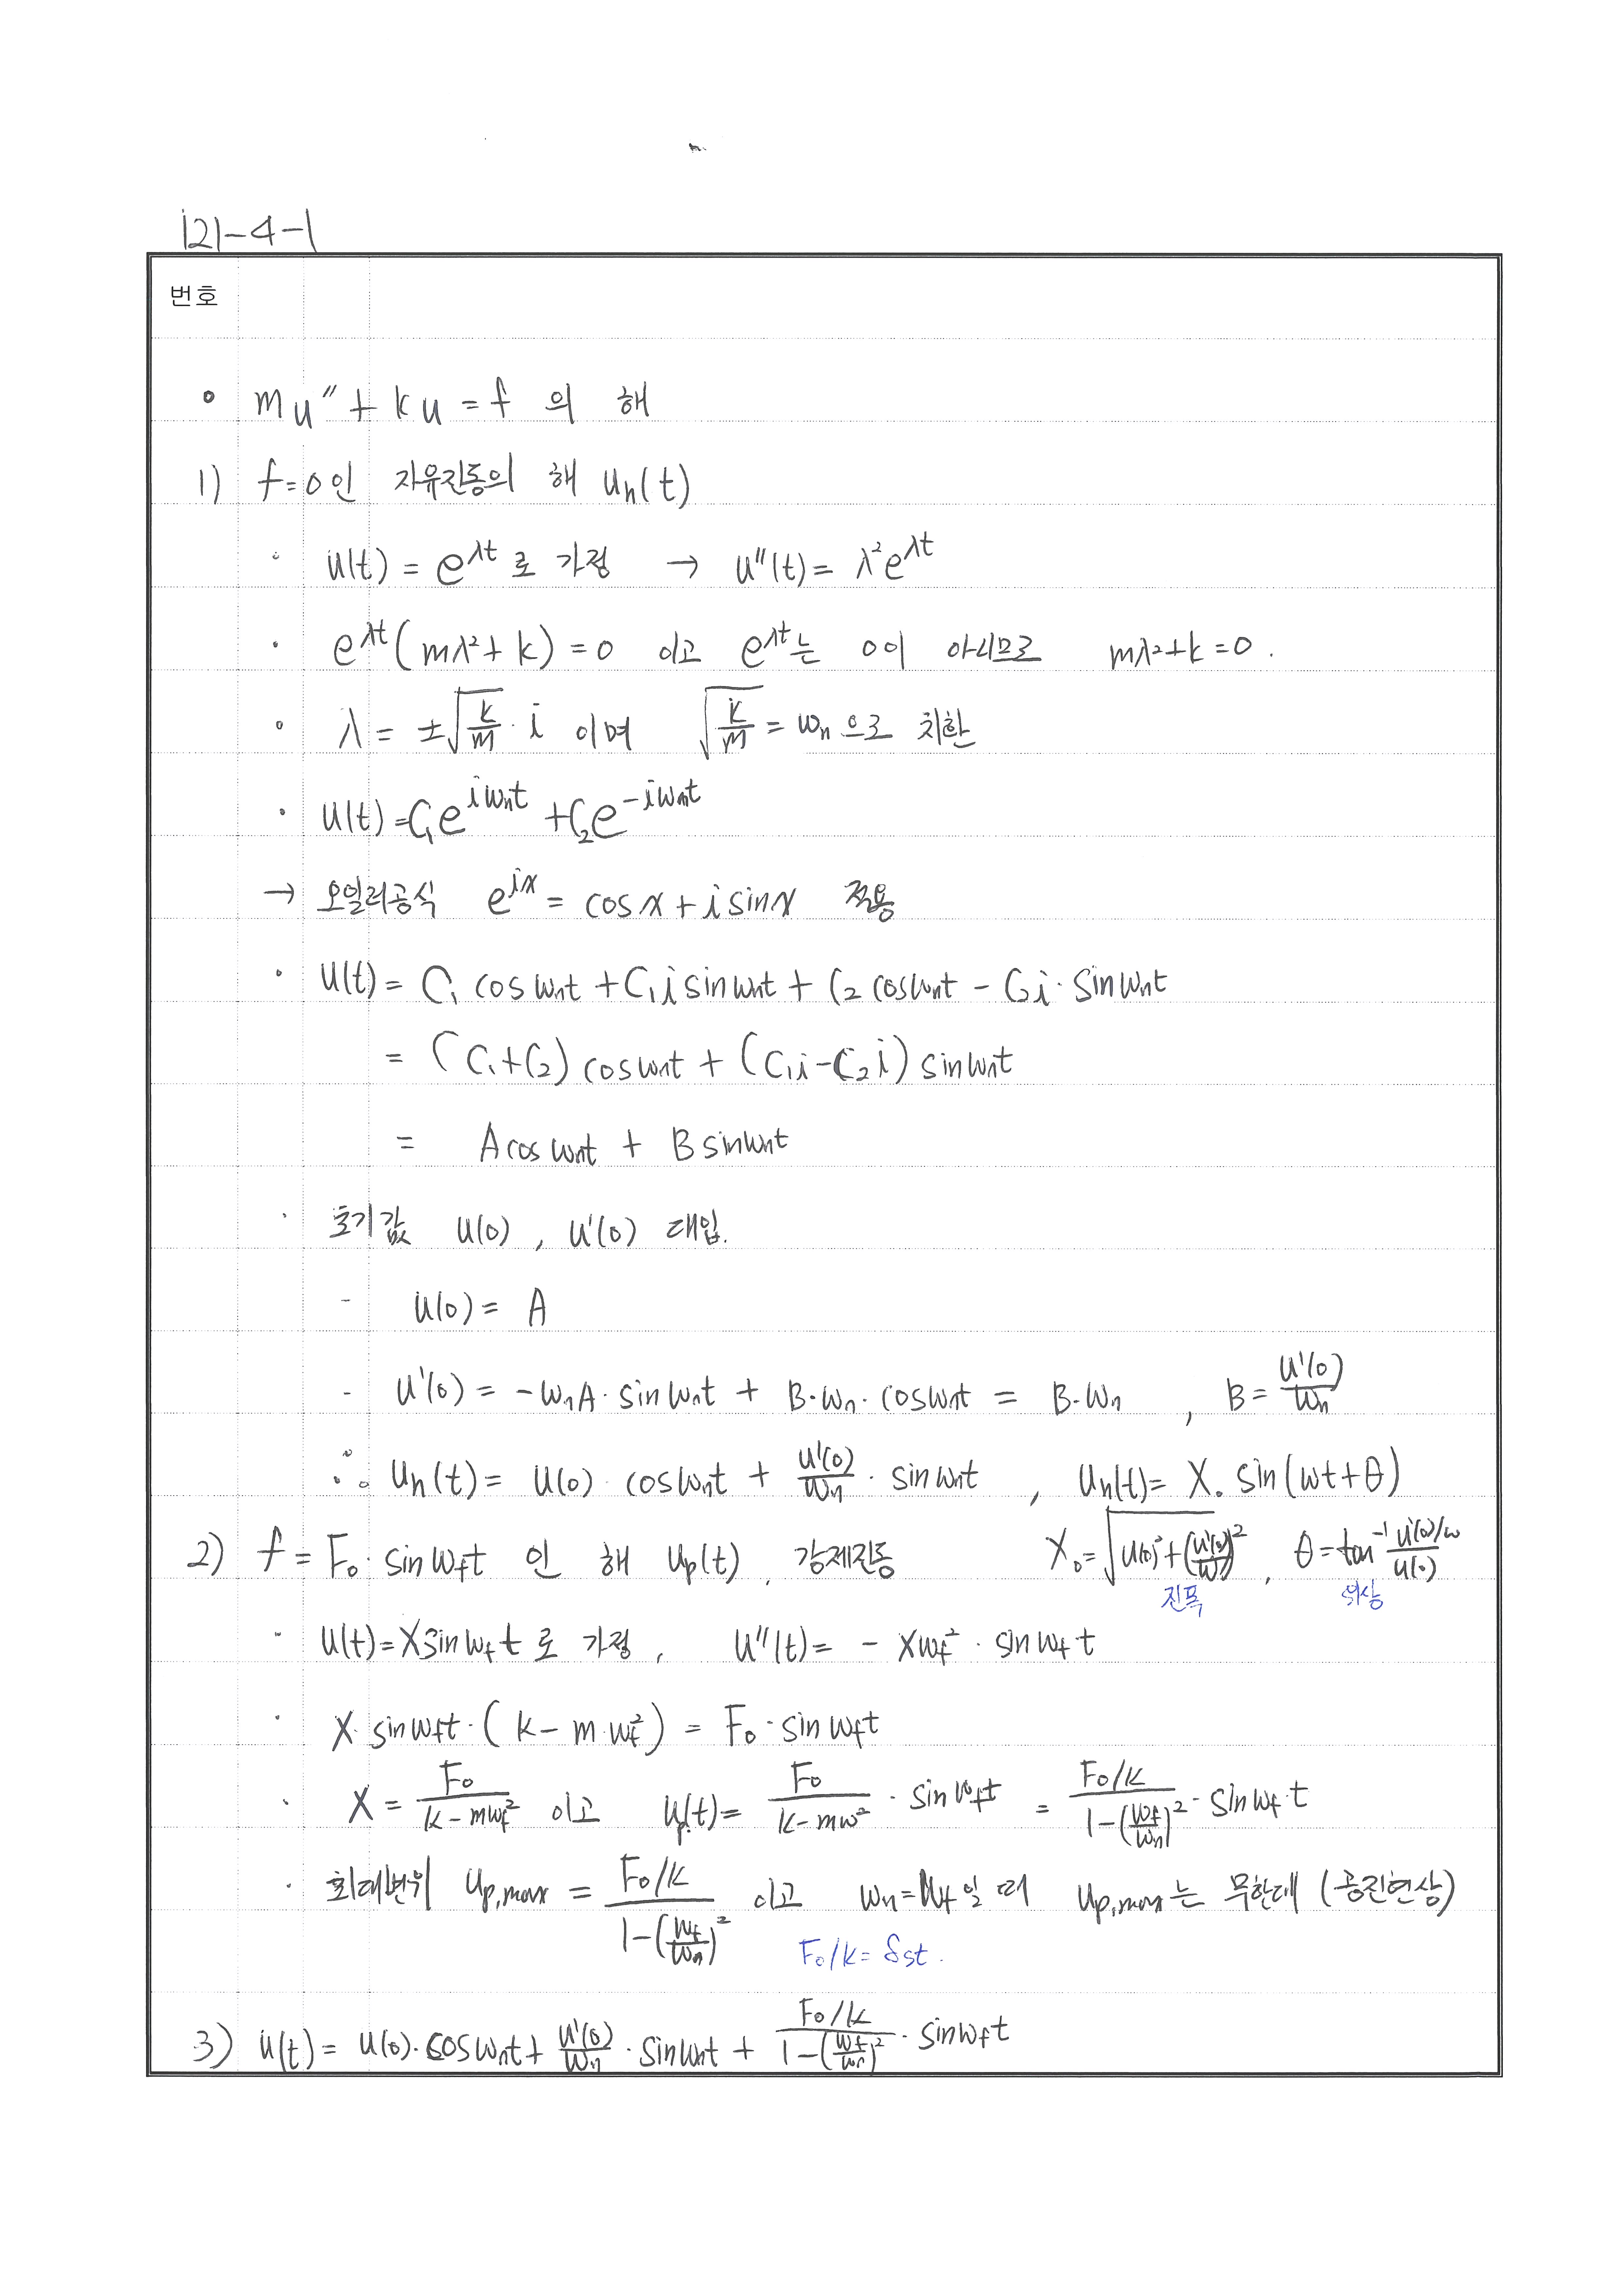 121-4-1
번호
∘ mu″ + ku = f 의 해
1) f=0인 자유진동의 해 uₕ(t)
· u(t) = e^(λt) 로 가정 → u″(t) = λ²e^(λt)
· e^(λt)(mλ²+k) = 0 이고 e^(λt)는 0이 아니므로 mλ²+k=0.
∘ λ = ±√(k/m)·i 이며 √(k/m) = ωₙ 으로 치환
· u(t) = C₁e^(iωₙt) + C₂e^(-iωₙt)
→ 오일러공식 e^(ix) = cosx + i sinx 적용
· u(t) = C₁ cosωₙt + C₁i sinωₙt + C₂ cosωₙt - C₂i·sinωₙt
= (C₁+C₂) cosωₙt + (C₁i-C₂i) sinωₙt
= A cosωₙt + B sinωₙt
· 초기값 u(0), u'(0) 대입.
- u(0) = A
- u'(0) = -ωₙA·sinωₙt + B·ωₙ·cosωₙt = B·ωₙ , B = u'(0)/ωₙ
∴ uₕ(t) = u(0)·cosωₙt + u'(0)/ωₙ · sinωₙt , uₕ(t) = X₀ sin(ωt+θ)
2) f = F₀·sinω_f t 인 해 u_p(t), 강제진동 X₀ = √(u(0)² + (u'(0)/ω)²) , θ = tan⁻¹ (u'(0)/ω)/u(0)
진폭 위상
· u(t) = X sinω_f t 로 가정, u″(t) = - Xω_f² · sinω_f t
· X·sinω_f t·(k - m·ω_f²) = F₀·sinω_f t
· X = F₀/(k-mω_f²) 이고 u_p(t) = F₀/(k-mω²) · sinω_f t = (F₀/k)/(1-(ω_f/ωₙ)²) · sinω_f t
· 최대변위 u_p,max = (F₀/k)/(1-(ω_f/ωₙ)²) 이고 ωₙ=ω_f 일 때 u_p,max는 무한대 (공진현상)
F₀/k = δst.
3) u(t) = u(0)·cosωₙt + u'(0)/ωₙ · sinωₙt + (F₀/k)/(1-(ω_f/ωₙ)²) · sinω_f t